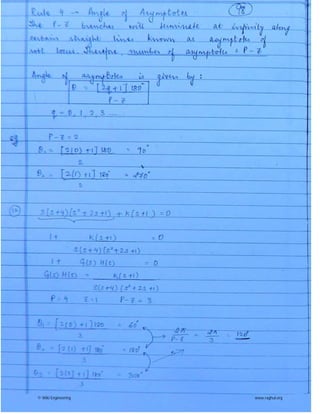 Rule 4 - Angle of Asymptotes
The P-Z branches will terminate at infinity along
certain straight lines known as asymptotes of
root locus. Therefore, number of asymptotes = P-Z
Angle of asymptotes is given by:
θ = [2q+1] 180°
P-Z
q = 0, 1, 2, 3 ...
eg P-Z = 2
θ₁ = [2(0)+1] 180 = 90°
2
θ₂ = [2(1)+1] 180° = 270°
2
S(S+4)(S²+2S+1) + K(S+1) = 0
1+ K(S+1) = 0
S(S+4)(S²+2S+1)
1+ G(S) H(S) = 0
G(S) H(S) = K(S+1)
S(S+4)(S²+2S+1)
P=4 Z=1 P-Z=3
θ₁ = [2(0)+1] 180 = 60°
3
2π
P-Z
= 2π
3
= 120°
θ₂ = [2(1)+1] 180° = 180°
3
θ₃ = [2(2)+1] 180° = 300°
3
www.raghul.org